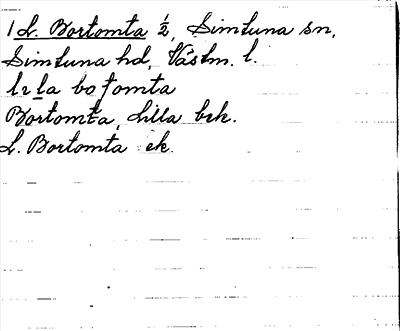 1 L. Bortomta ½, Simtuna sn,
Simtuna hd, Västm. l.
bo tomta
Bortomta, Lilla brk.
L. Bortomta ek.